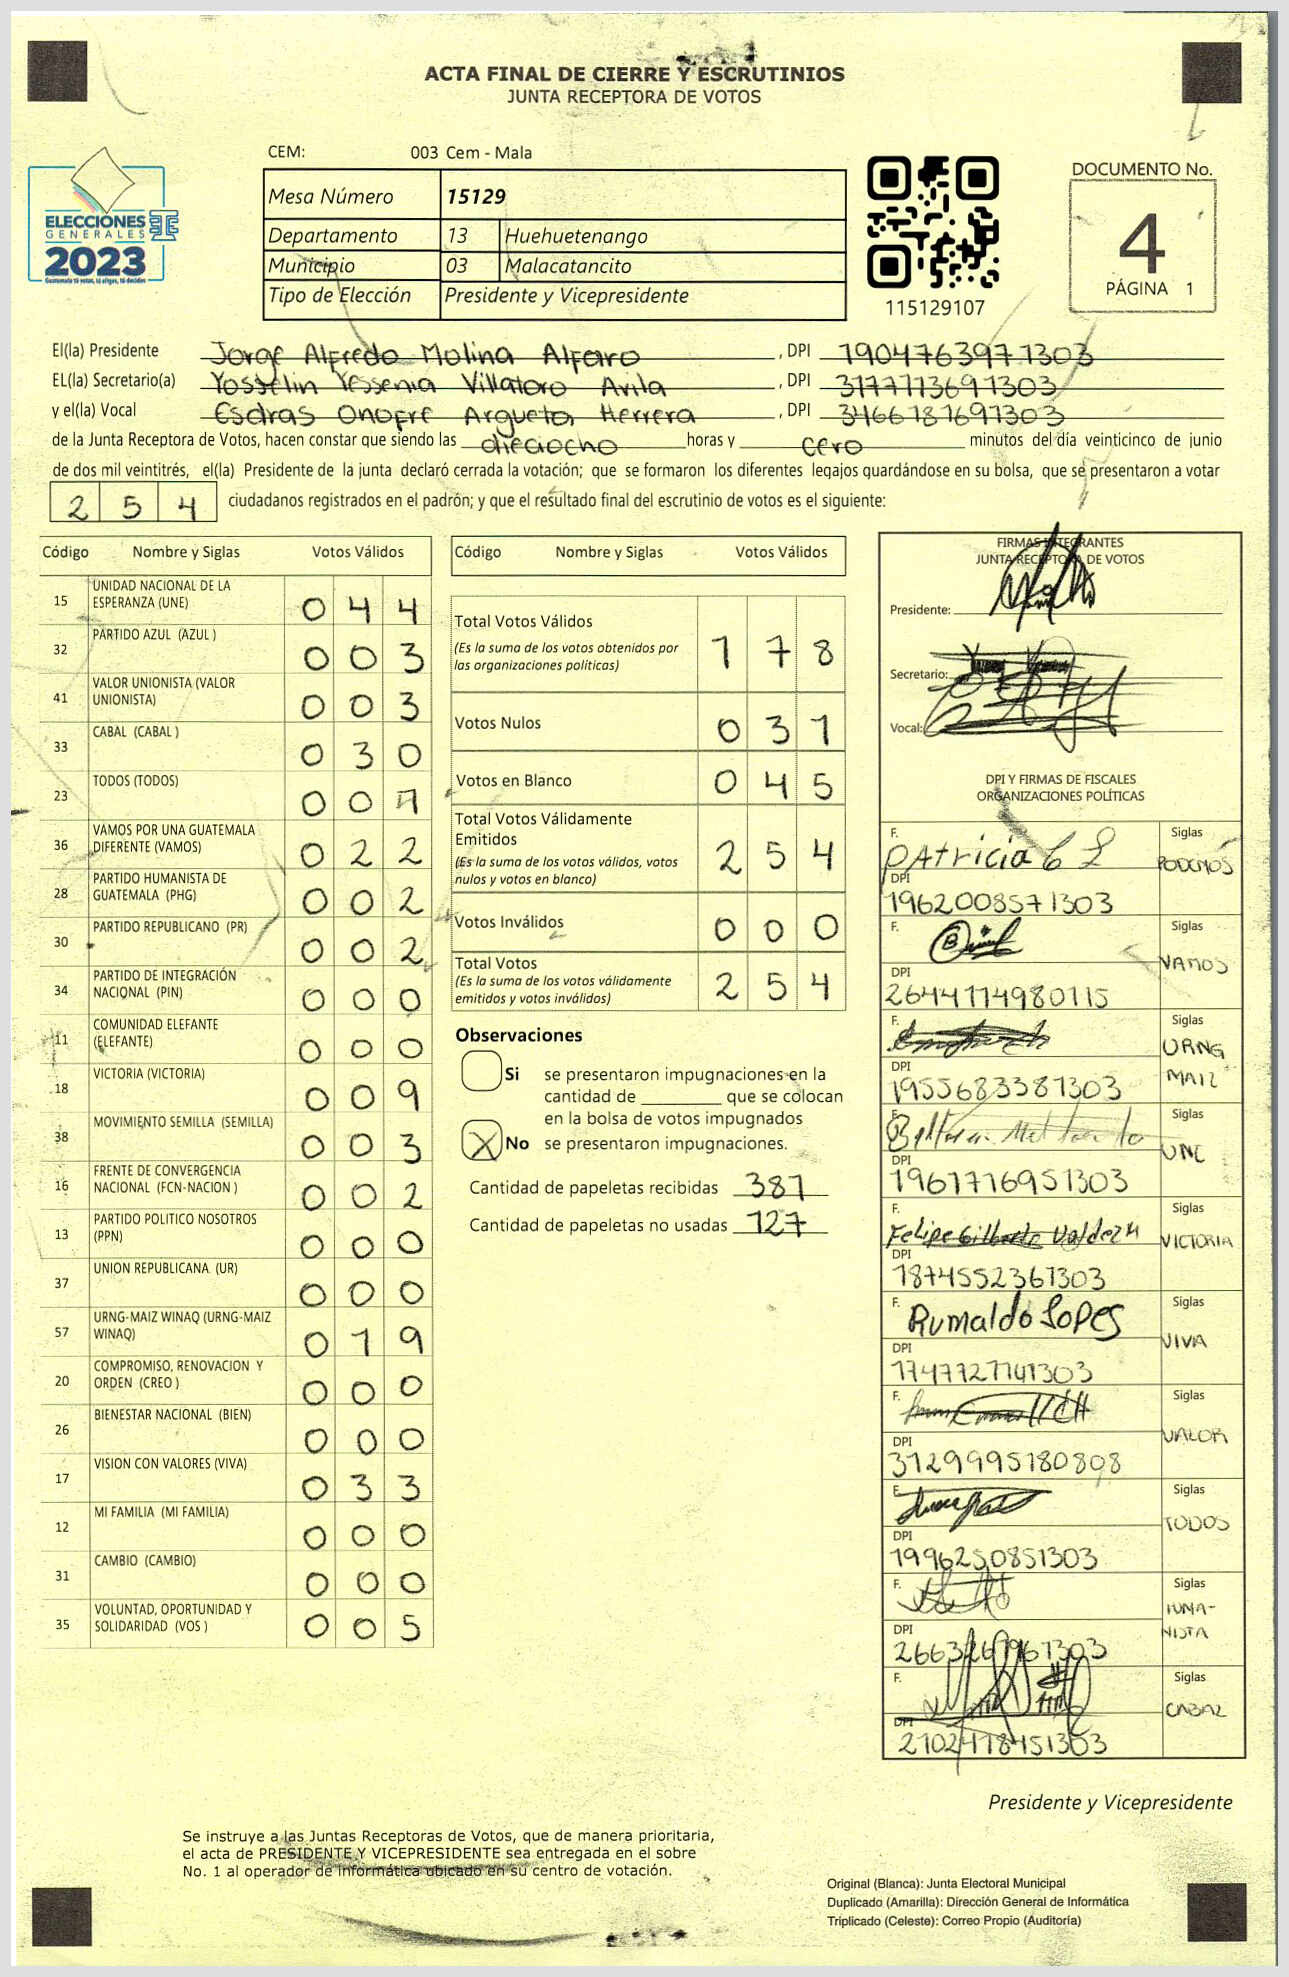 ACTA FINAL DE CIERRE Y ESCRUTINIOS
JUNTA RECEPTORA DE VOTOS
CEM: 003 Cem - Mala
ELECCIONES
GENERALES
2023
Mesa Número 15129
Departamento 13 Huehuetenango
Municipio 03 Malacatancito
Tipo de Elección Presidente y Vicepresidente
115129107
DOCUMENTO No.
4
PÁGINA 1
El(la) Presidente Jorge Alfredo Molina Alfaro , DPI 1904763971303
EL(la) Secretario(a) Yosselin Yessenia Villatoro Avila , DPI 3177713691303
y el(la) Vocal Esdras Onofre Argueta Herrera , DPI 3466787691303
de la Junta Receptora de Votos, hacen constar que siendo las dieciocho horas y cero minutos del día veinticinco de junio
de dos mil veintitrés, el(la) Presidente de la junta declaró cerrada la votación; que se formaron los diferentes legajos guardándose en su bolsa, que se presentaron a votar
254 ciudadanos registrados en el padrón; y que el resultado final del escrutinio de votos es el siguiente:
Código Nombre y Siglas Votos Válidos
15 UNIDAD NACIONAL DE LA ESPERANZA (UNE) 0 4 4
32 PARTIDO AZUL (AZUL ) 0 0 3
41 VALOR UNIONISTA (VALOR UNIONISTA) 0 0 3
33 CABAL (CABAL ) 0 3 0
23 TODOS (TODOS) 0 0
36 VAMOS POR UNA GUATEMALA DIFERENTE (VAMOS) 0 2 2
28 PARTIDO HUMANISTA DE GUATEMALA (PHG) 0 0 2
30 PARTIDO REPUBLICANO (PR) 0 0 2
34 PARTIDO DE INTEGRACIÓN NACIONAL (PIN) 0 0 0
11 COMUNIDAD ELEFANTE (ELEFANTE) 0 0 0
18 VICTORIA (VICTORIA) 0 0 9
38 MOVIMIENTO SEMILLA (SEMILLA) 0 0 3
16 FRENTE DE CONVERGENCIA NACIONAL (FCN-NACION ) 0 0 2
13 PARTIDO POLITICO NOSOTROS (PPN) 0 0 0
37 UNION REPUBLICANA (UR) 0 0 0
57 URNG-MAIZ WINAQ (URNG-MAIZ WINAQ) 0 1 9
20 COMPROMISO, RENOVACION Y ORDEN (CREO ) 0 0 0
26 BIENESTAR NACIONAL (BIEN) 0 0 0
17 VISION CON VALORES (VIVA) 0 3 3
12 MI FAMILIA (MI FAMILIA) 0 0 0
31 CAMBIO (CAMBIO) 0 0 0
35 VOLUNTAD, OPORTUNIDAD Y SOLIDARIDAD (VOS ) 0 0 5
Código Nombre y Siglas Votos Válidos
Total Votos Válidos 1 7 8
(Es la suma de los votos obtenidos por
las organizaciones políticas)
Votos Nulos 0 3 1
Votos en Blanco 0 4 5
Total Votos Válidamente
Emitidos 2 5 4
(Es la suma de los votos válidos, votos
nulos y votos en blanco)
Votos Inválidos 0 0 0
Total Votos 2 5 4
(Es la suma de los votos válidamente
emitidos y votos inválidos)
Observaciones
Si se presentaron impugnaciones en la
cantidad de ________ que se colocan
en la bolsa de votos impugnados
X No se presentaron impugnaciones.
Cantidad de papeletas recibidas 381
Cantidad de papeletas no usadas 127
FIRMAS INTEGRANTES
JUNTA RECEPTORA DE VOTOS
Presidente:
Secretario:
Vocal:
DPI Y FIRMAS DE FISCALES
ORGANIZACIONES POLÍTICAS
F. Patricia Siglas PODEMOS
DPI 1962008571303
F. Siglas VAMOS
DPI 2644114980115
F. Siglas URNG MAIZ
DPI 1955683381303
F. Siglas UNE
DPI 1961776951303
F. Felipe Gilberto Valdez Siglas VICTORIA
DPI 1874552361303
F. Rumaldo Lopes Siglas VIVA
DPI 1747727141303
F. Siglas VALOR
DPI 3129995180808
F. Siglas TODOS
DPI 1996250851303
F. Siglas
DPI
F. Siglas CABAL
DPI 2102418451303
Presidente y Vicepresidente
Se instruye a las Juntas Receptoras de Votos, que de manera prioritaria,
el acta de PRESIDENTE Y VICEPRESIDENTE sea entregada en el sobre
No. 1 al operador de informática ubicado en su centro de votación.
Original (Blanca): Junta Electoral Municipal
Duplicado (Amarilla): Dirección General de Informática
Triplicado (Celeste): Correo Propio (Auditoría)